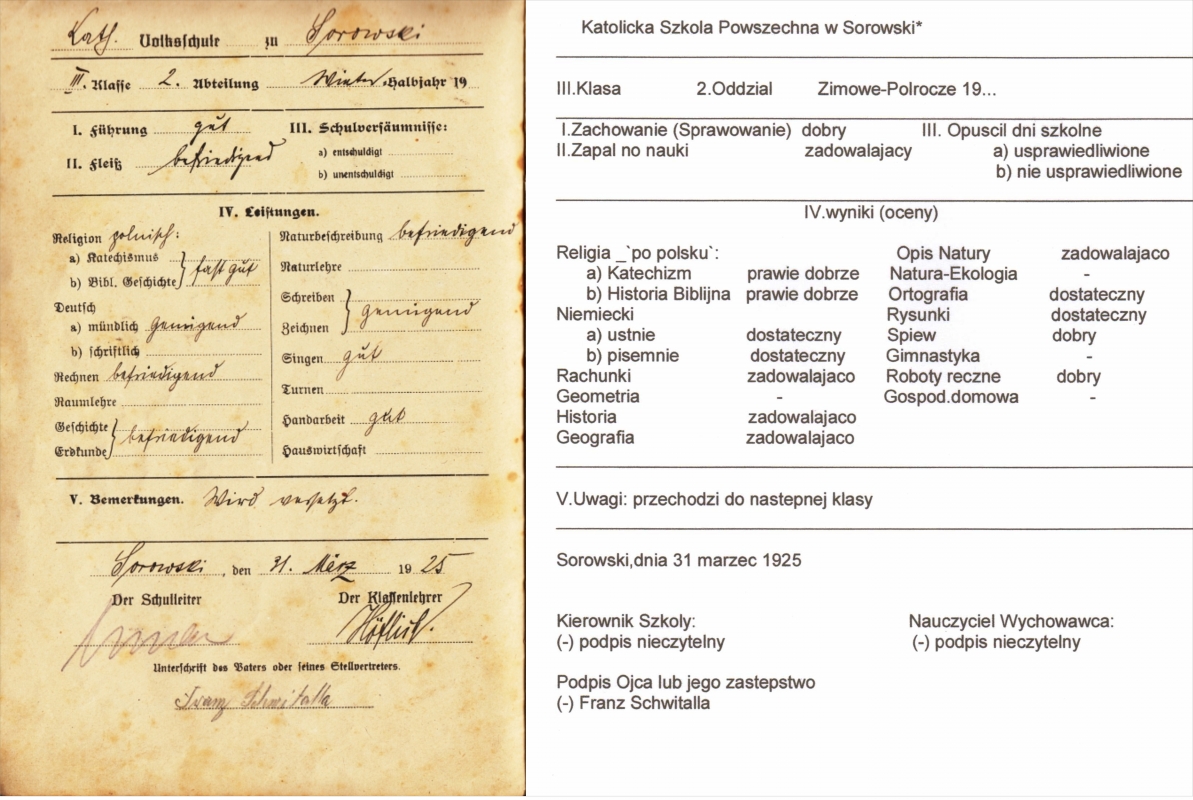 Kath. Volksschule zu Sorowski
III. Klasse 2. Abteilung Winter-Halbjahr 19
I. Führung gut
II. Fleiß befriedigend
III. Schulversäumnisse:
a) entschuldigt
b) unentschuldigt
IV. Leistungen.
Religion polnisch:
a) Katechismus
b) Bibl. Geschichte } fast gut
Deutsch
a) mündlich genügend
b) schriftlich
Rechnen befriedigend
Raumlehre
Geschichte
Erdkunde } befriedigend
Naturbeschreibung befriedigend
Naturlehre
Schreiben
Zeichnen } genügend
Singen gut
Turnen
Handarbeit gut
Hauswirtschaft
V. Bemerkungen. Wird versetzt.
Sorowski, den 31. März 1925
Der Schulleiter Der Klassenlehrer
Höflich.
Unterschrift des Vaters oder seines Stellvertreters.
Franz Schwitalla
Katolicka Szkola Powszechna w Sorowski*
III.Klasa 2.Oddzial Zimowe-Polrocze 19...
I.Zachowanie (Sprawowanie) dobry III. Opuscil dni szkolne
II.Zapal no nauki zadowalajacy a) usprawiedliwione
b) nie usprawiedliwione
IV.wyniki (oceny)
Religia _`po polsku`: Opis Natury zadowalajaco
a) Katechizm prawie dobrze Natura-Ekologia -
b) Historia Biblijna prawie dobrze Ortografia dostateczny
Niemiecki Rysunki dostateczny
a) ustnie dostateczny Spiew dobry
b) pisemnie dostateczny Gimnastyka -
Rachunki zadowalajaco Roboty reczne dobry
Geometria - Gospod.domowa -
Historia zadowalajaco
Geografia zadowalajaco
V.Uwagi: przechodzi do nastepnej klasy
Sorowski,dnia 31 marzec 1925
Kierownik Szkoly: Nauczyciel Wychowawca:
(-) podpis nieczytelny (-) podpis nieczytelny
Podpis Ojca lub jego zastepstwo
(-) Franz Schwitalla